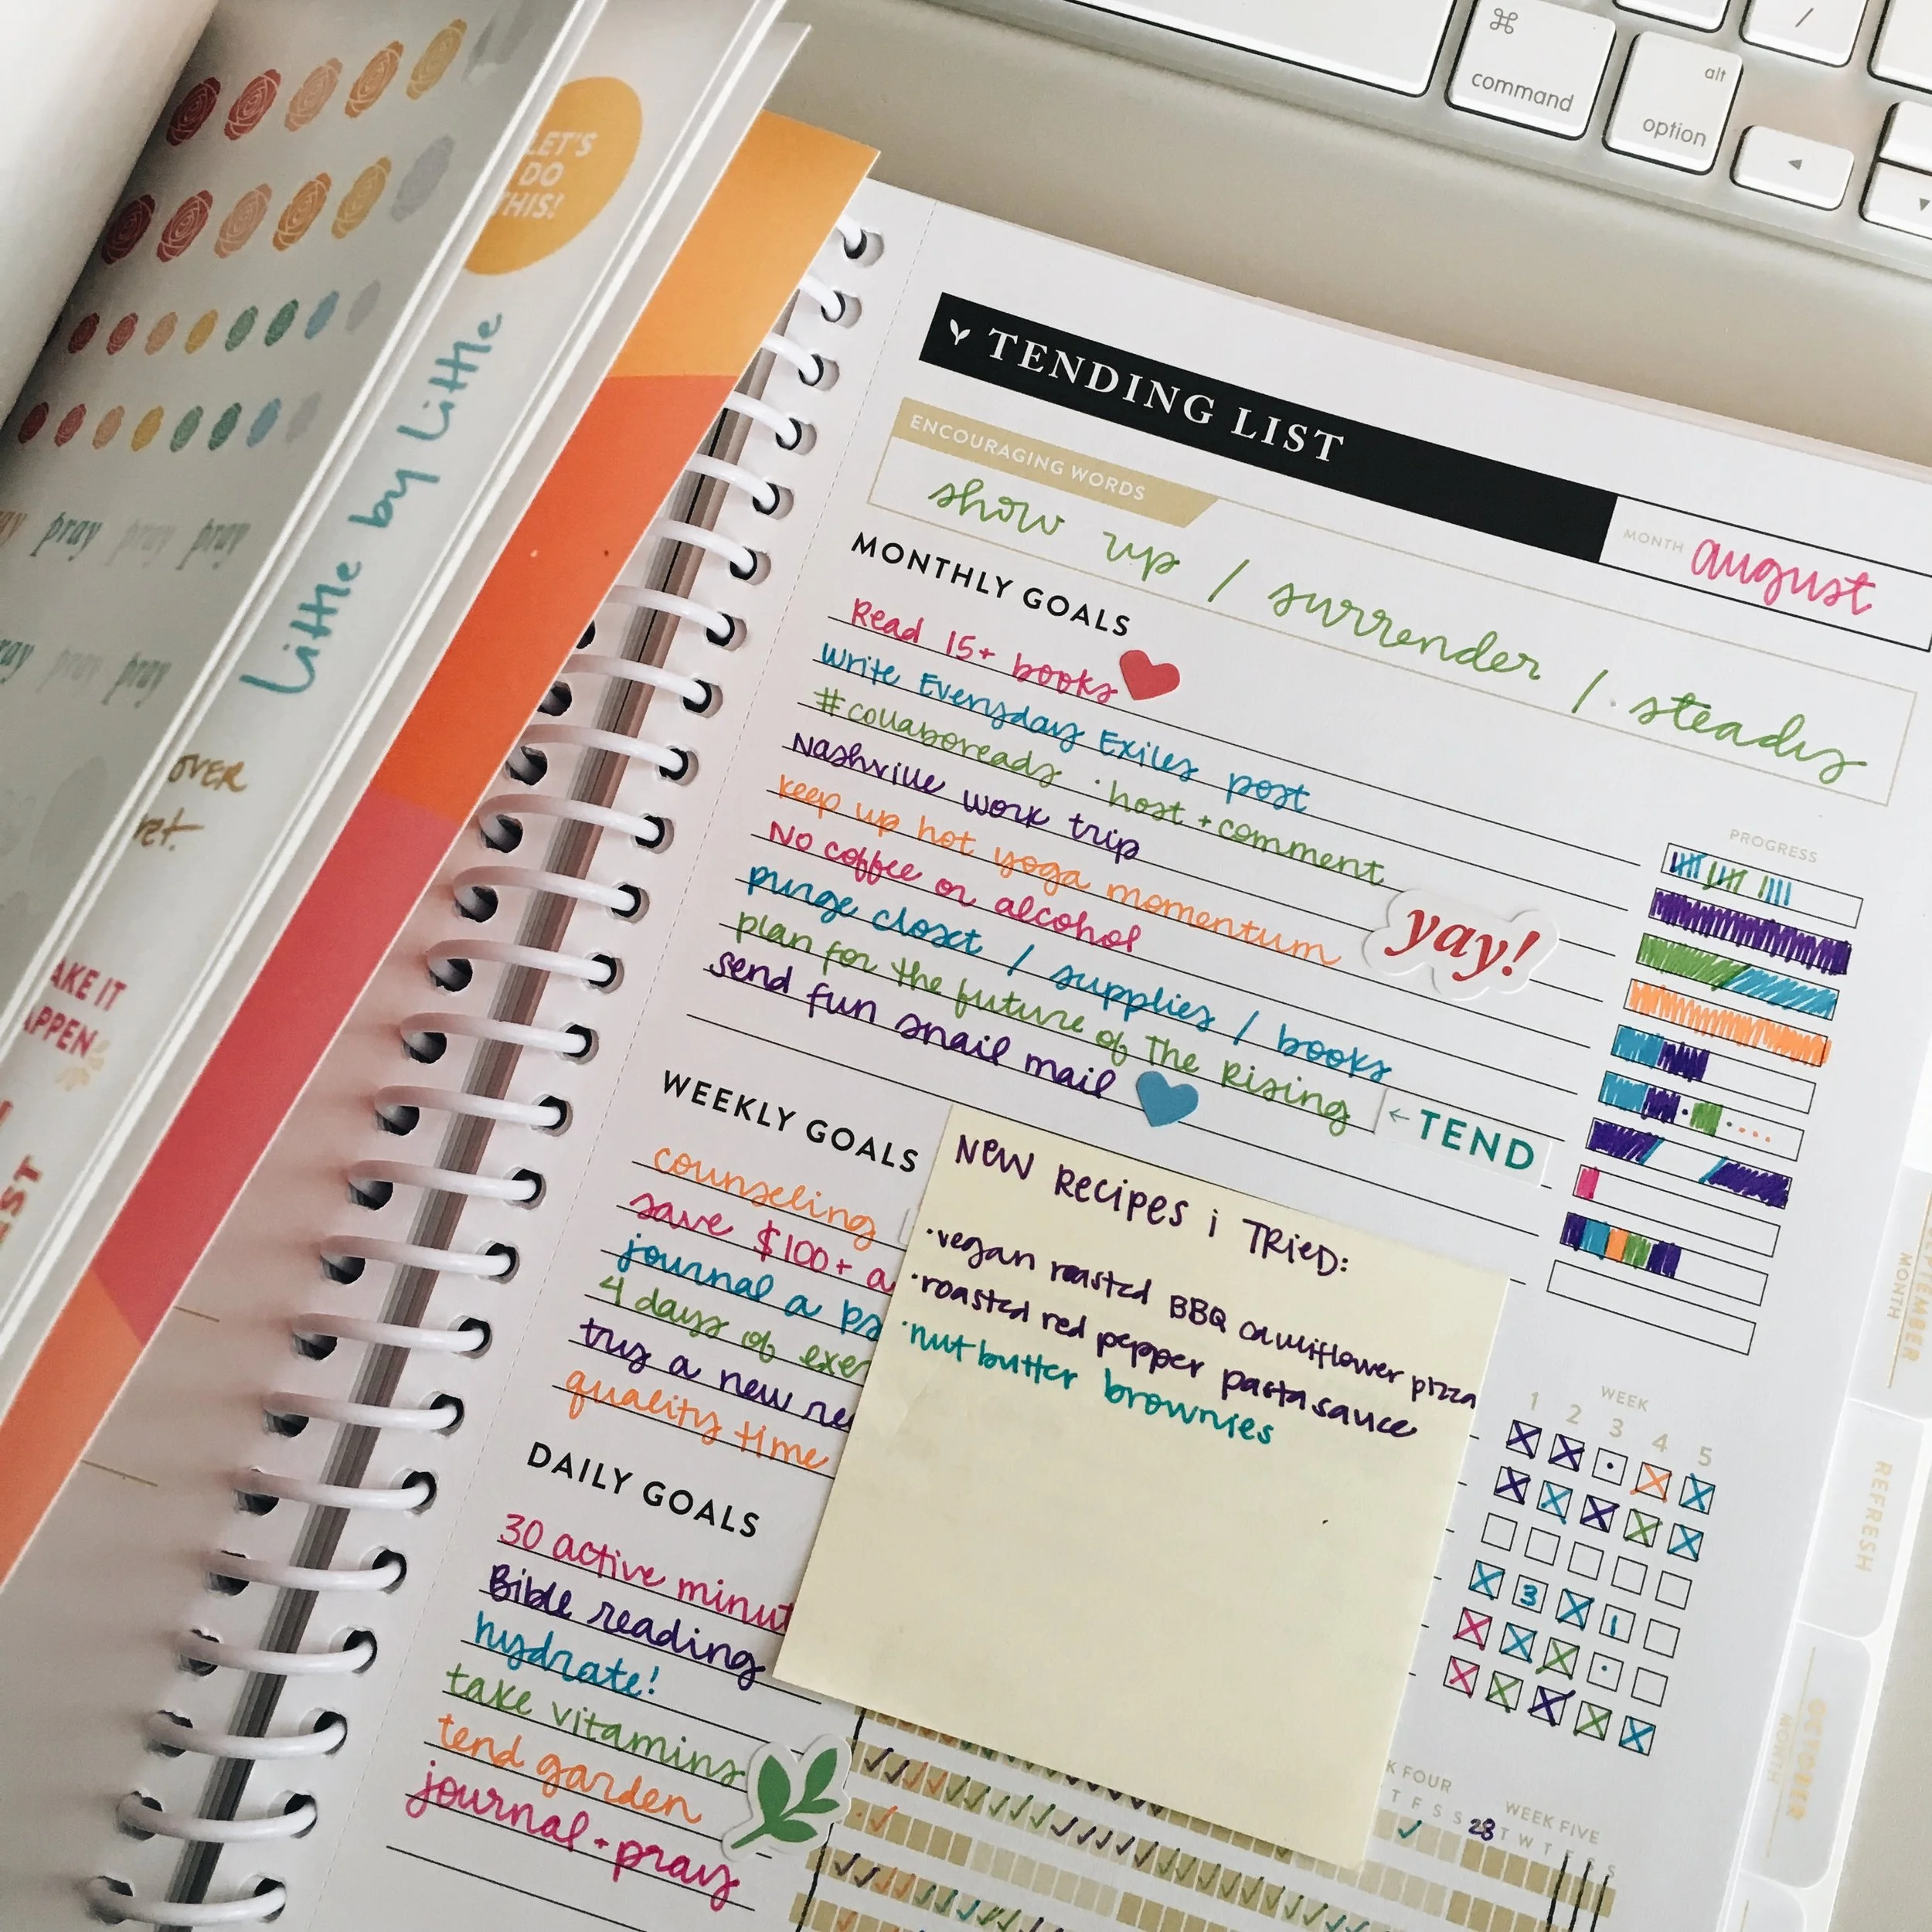 command
alt
option
/
LET'S
DO
THIS!
Little by Little
pray pray pray
pray pray
OVER
TENDING LIST
MONTH august
ENCOURAGING WORDS
show up / surrender / steady
MONTHLY GOALS
Read 15+ books
write Everyday Exiles post
#collaboreads · host + comment
Nashville work trip
keep up hot yoga momentum
No coffee or alcohol
purge closet / supplies / books
plan for the future of The Rising
send fun snail mail
yay!
← TEND
PROGRESS
WEEKLY GOALS
counseling
save $100+ a
journal a
4 days of
try a new
quality time
NEW RECIPES i TRIED:
·vegan roasted BBQ cauliflower pizza
·roasted red pepper pasta sauce
·nut butter brownies
WEEK
1 2 3 4 5
3 1
DAILY GOALS
30 active
Bible reading
hydrate!
take vitamins
tend garden
journal + pray
FOUR
T F S S
28
WEEK FIVE
T W T F S S
SEPTEMBER
MONTH
REFRESH
OCTOBER
MONTH